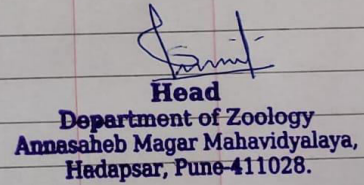 Head
Department of Zoology
Annasaheb Magar Mahavidyalaya,
Hadapsar, Pune-411028.